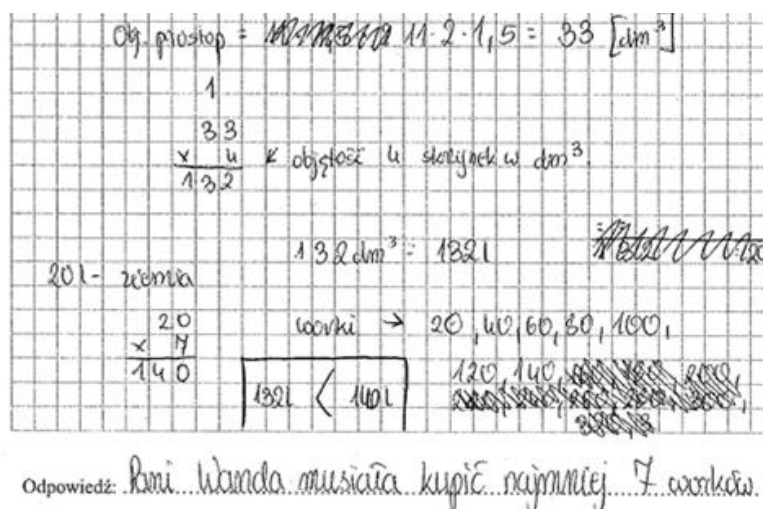 Obj. prostop = 11·2·1,5 = 33 [dm³]
1
33
x 4 ↙ objętość 4 skrzynek w dm³.
132
132 dm³ = 132 l
20 l - ziemia
20 worki → 20, 40, 60, 80, 100,
x 7
140 120, 140
132 l < 140 l
Odpowiedź: Pani Wanda musiała kupić najmniej 7 worków